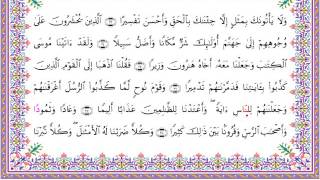 وَلَا يَأْتُونَكَ بِمَثَلٍ إِلَّا جِئْنَٰكَ بِٱلْحَقِّ وَأَحْسَنَ تَفْسِيرًا ۝ ٱلَّذِينَ يُحْشَرُونَ عَلَىٰ
وُجُوهِهِمْ إِلَىٰ جَهَنَّمَ أُو۟لَٰٓئِكَ شَرٌّ مَّكَانًا وَأَضَلُّ سَبِيلًا ۝ وَلَقَدْ ءَاتَيْنَا مُوسَى
ٱلْكِتَٰبَ وَجَعَلْنَا مَعَهُۥٓ أَخَاهُ هَٰرُونَ وَزِيرًا ۝ فَقُلْنَا ٱذْهَبَآ إِلَى ٱلْقَوْمِ ٱلَّذِينَ
كَذَّبُوا۟ بِـَٔايَٰتِنَا فَدَمَّرْنَٰهُمْ تَدْمِيرًا ۝ وَقَوْمَ نُوحٍ لَّمَّا كَذَّبُوا۟ ٱلرُّسُلَ أَغْرَقْنَٰهُمْ
وَجَعَلْنَٰهُمْ لِلنَّاسِ ءَايَةً وَأَعْتَدْنَا لِلظَّٰلِمِينَ عَذَابًا أَلِيمًا ۝ وَعَادًا وَثَمُودَا۟
وَأَصْحَٰبَ ٱلرَّسِّ وَقُرُونًۢا بَيْنَ ذَٰلِكَ كَثِيرًا ۝ وَكُلًّا ضَرَبْنَا لَهُ ٱلْأَمْثَٰلَ وَكُلًّا تَبَّرْنَا